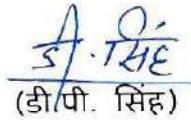 डी. सिंह
(डी.पी. सिंह)